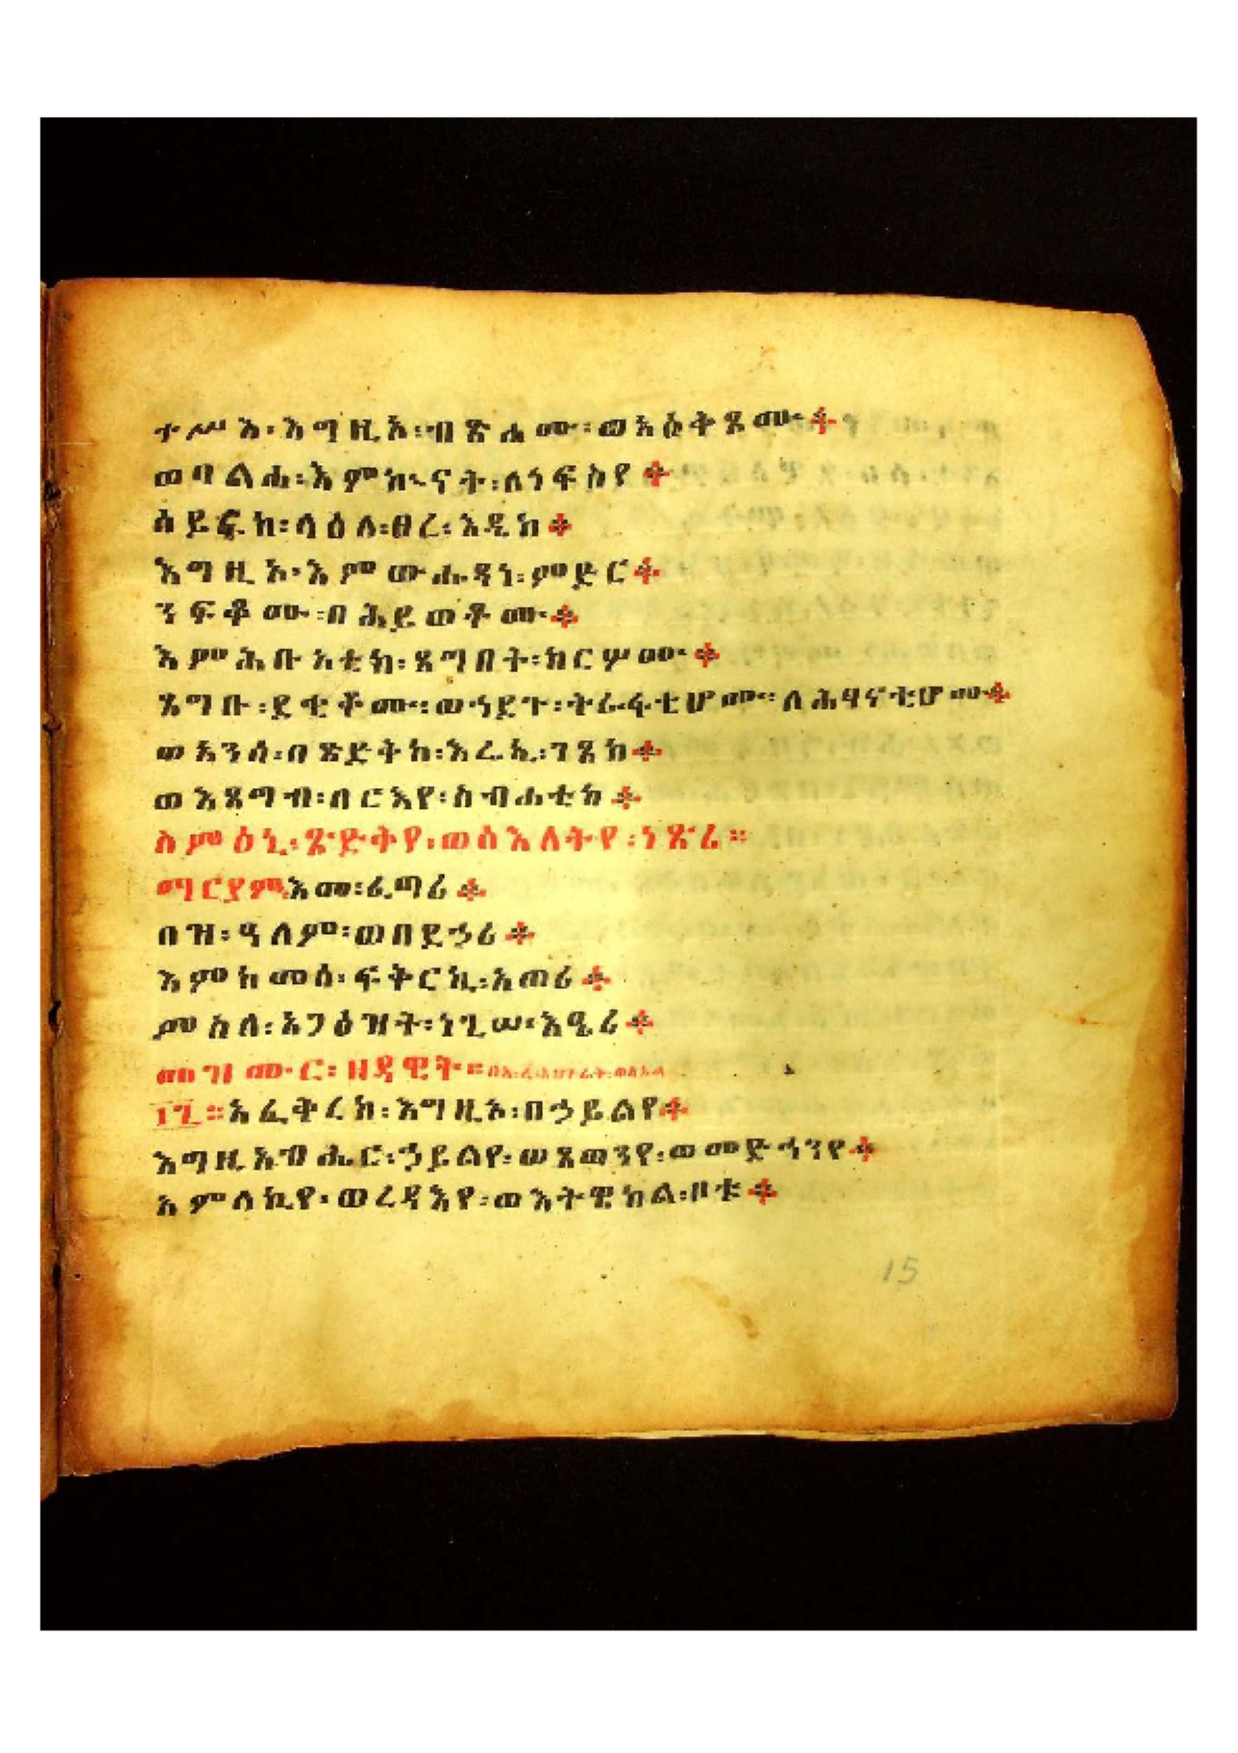 ተሥእ፡እግዚኦ፡ብጽሖሙ፡ወአዕቅጾሙ፨
ወባልሐ፡እምኵናት፡ለነፍስየ፨
ሰይፍከ፡ላዕለ፡ፀረ፡እዴከ፨
እግዚኦ፡እምውሑዳነ፡ምድር፨
ንፍቆሙ፡በሕይወቶሙ፨
እምሕቡአቲከ፡ጸግበት፡ከርሦሙ፨
ጸግቡ፡ደቂቆሙ፡ወኀደጉ፡ትራፋቲሆሙ፡ለሕፃናቲሆሙ፨
ወአንሰ፡በጽድቅከ፡እሬኢ፡ገጸከ፨
ወእጸግብ፡በርእየ፡ስብሐቲከ፨
ስምዕኒ፡ጽድቅየ፡ወስእለትየ፡ነጽሪ።
ማርያም፡እመ፡ፈጣሪ፨
በዝ፡ዓለም፡ወበደኃሪ፨
እምከመሰ፡ፍቅርኪ፡አጠሪ፨
ምስለ፡አጋዕዝት፡ነጊሠ፡እዔሪ፨
መዝሙር፡ዘዳዊት።
፲፯።አፈቅረከ፡እግዚኦ፡በኃይልየ፨
እግዚአብሔር፡ኃይልየ፡ወጸወንየ፡ወመድኀንየ፨
አምላኪየ፡ወረዳእየ፡ወእትዌከል፡ቦቱ፨
15